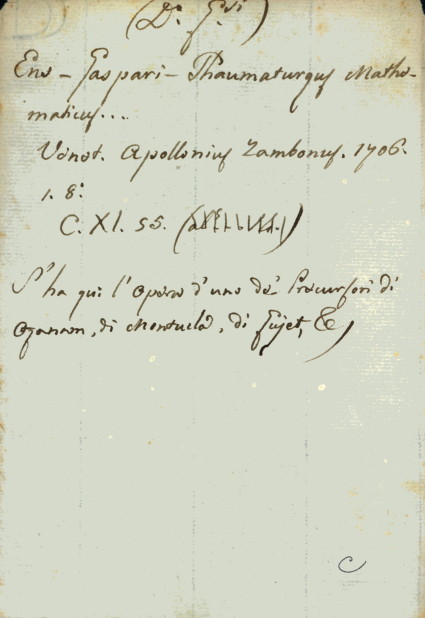 (Ds. Gsi)
Ens - Gaspari - Thaumaturgus Mathe-
maticus...
Venet. Apollonius Zambonus. 1706.
1. 8°.
C. XI. 55.
S'ha qui l'Opera d'uno de' Precursori di
Ozanam, di Montucla, di Gujet, &
C